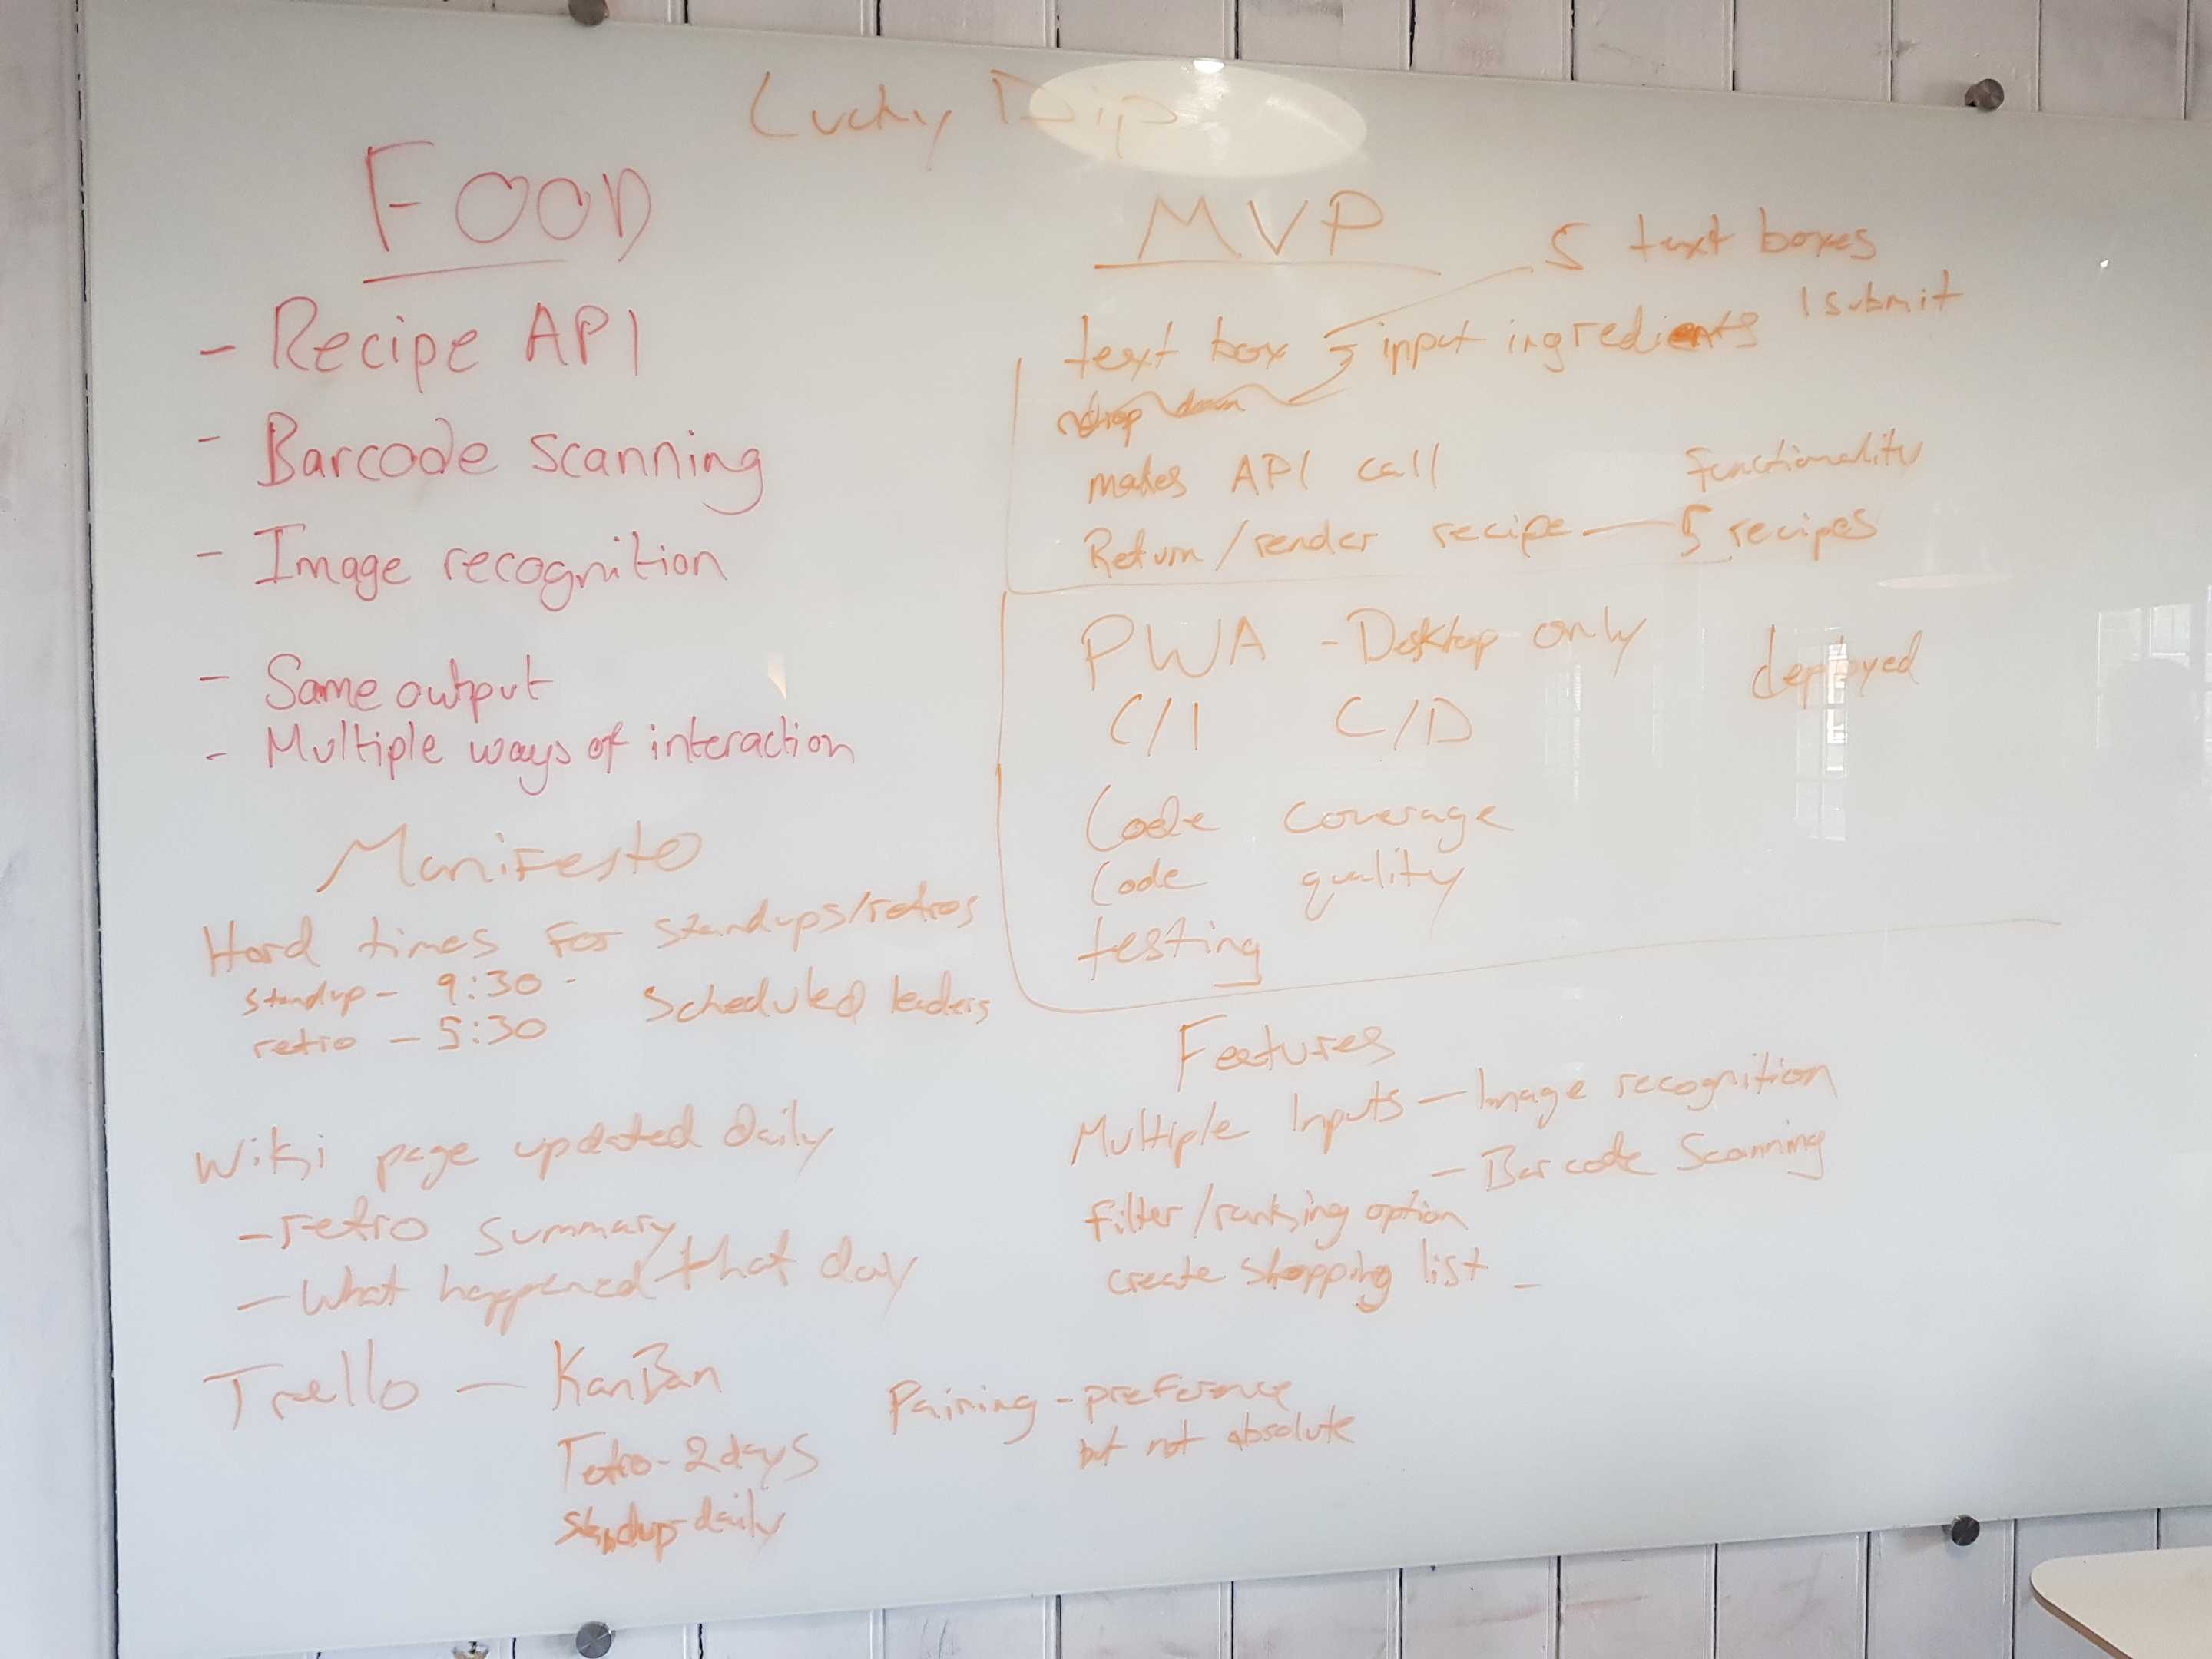 Lucky Dip
FOOD
- Recipe API
- Barcode scanning
- Image recognition
- Same output
- Multiple ways of interaction
Manifesto
Hard times for standups/retros
standup - 9:30 -
retro - 5:30
Scheduled leaders
Wiki page updated daily
- retro summary
- What happened that day
Trello - KanBan
Tetro - 2 days
standup - daily
Pairing - preference
but not absolute
MVP
5 text boxes
1 submit
text box input ingredients
drop down
makes API call
functionality
Return / render recipe - 5 recipes
PWA - Desktop only
deployed
C/I C/D
Code coverage
Code quality
testing
Features
Multiple Inputs - Image recognition
- Barcode Scanning
filter / ranking option
create shopping list -